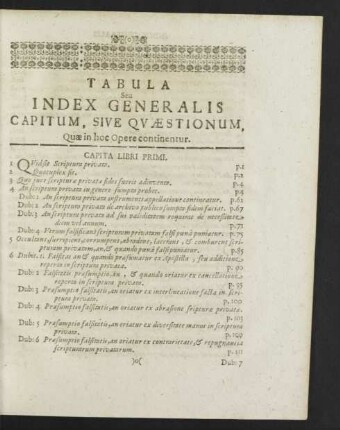 TABULA
Seu
INDEX GENERALIS
CAPITUM, SIVE QVÆSTIONUM,
Quæ in hoc Opere continentur.
CAPITA LIBRI PRIMI.
1 QVid sit Scriptura privata. p.1
2 Quotuplex sit. p.2
Quo jure scriptura privata fides fuerit adinventa. p.4
4 An scriptura privata in genere sumpta probet. p.9
Dub: 1 An scriptura privata instrumenti appellatione contineatur. p.61
Dub: 2 An scriptura privata de archivo publico sumpta fidem faciat. p.67
Dub: 3 An scriptura privata ad sui validitatem requirat de necessitate
diem vel annum. p.71
Dub: 4 Utrum falsificans scripturam privatam falsi pœna puniatur. p.75
5 Occultans, surripiens, corrumpens, abradens, lacerans, & comburens scri-
pturam privatam, an, & quando pœna falsi puniatur. p.85
6 Dub: 1 Falsitas an & quando præsumatur ex apostilla, seu additione,
reperta in scriptura privata. p.92
Dub: 2 Falsitatis præsumptio an, & quando oriatur ex cancellatione,
reperta in scriptura privata. p.95
Dub: 3 Præsumptio falsitatis, an oriatur ex interlineatione facta in scri-
ptura privata. p.100
Dub: 4 Præsumptio falsitatis, an oriatur ex abrasione scriptura privata.
p. 103
Dub: 5 Præsumptio falsitatis, an oriatur ex diversitate manus in scriptura
privata. p. 109
Dub: 6 Præsumptio falsitatis, an oriatur ex contrarietate, & repugnantia
scripturarum privatarum. p. 111
)o( Dub: 7